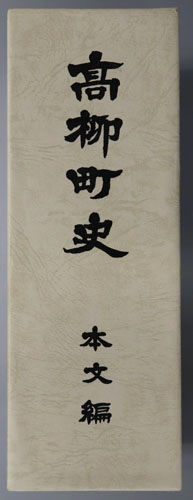 髙柳町史
本文編